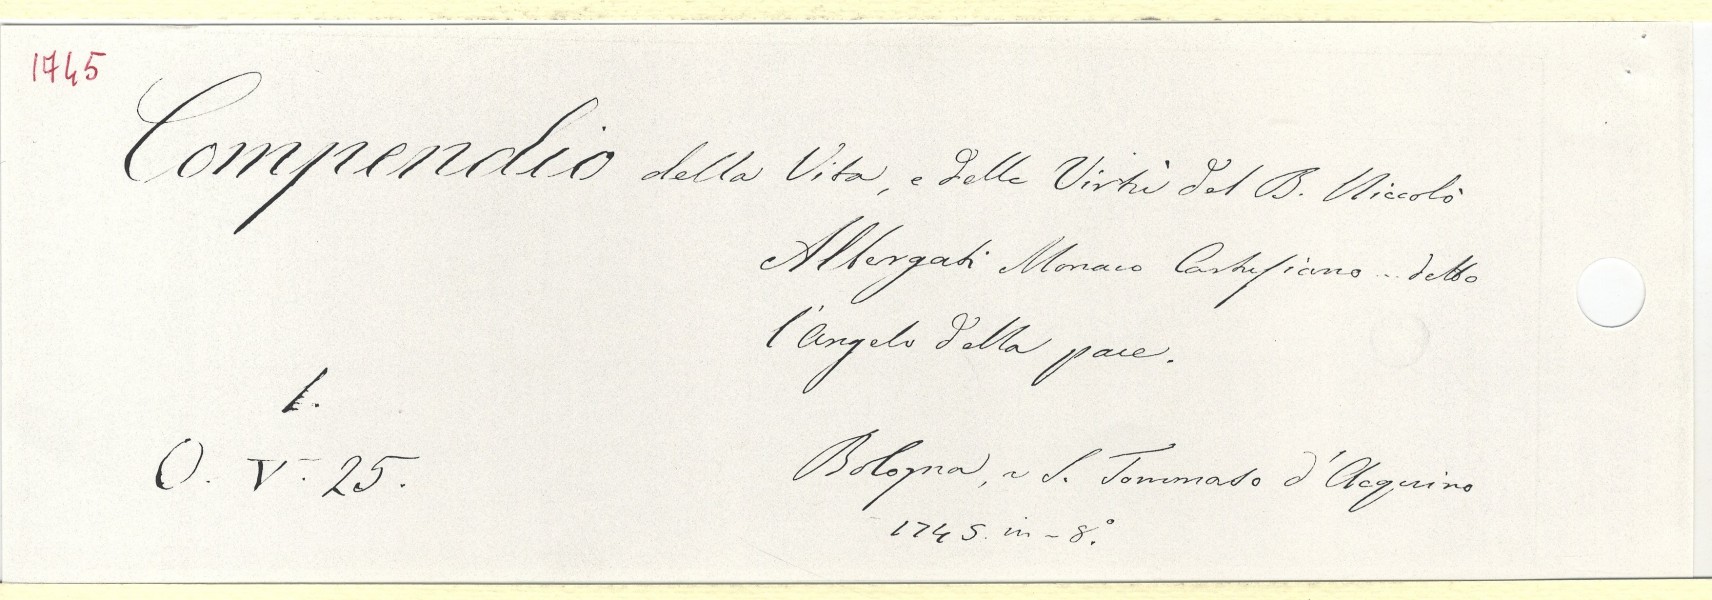 1745
Compendio della Vita, e delle Virtù del B. Niccolò
Albergati Monaco Certosiano .. detto
l'Angelo della pace.
1.
O. V. 25.
Bologna, ~ S. Tommaso d'Acquino
1745. in - 8.°